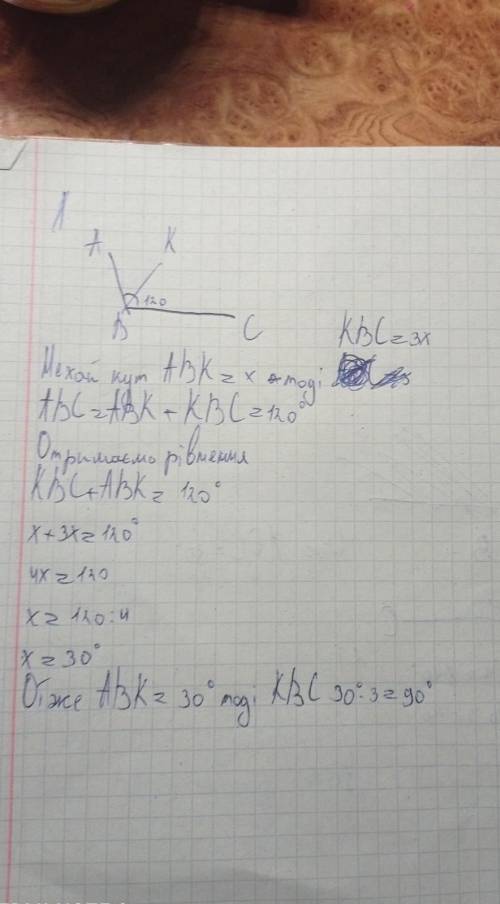 A K
120
B C
KBC = 3x
Нехай кут ABK = x тоді
ABC = ABK + KBC = 120°
Отримаємо рівнення
KBC + ABK = 120°
x + 3x = 120°
4x = 120
x = 120 : 4
x = 30°
Отже ABK = 30° тоді KBC 30° · 3 = 90°